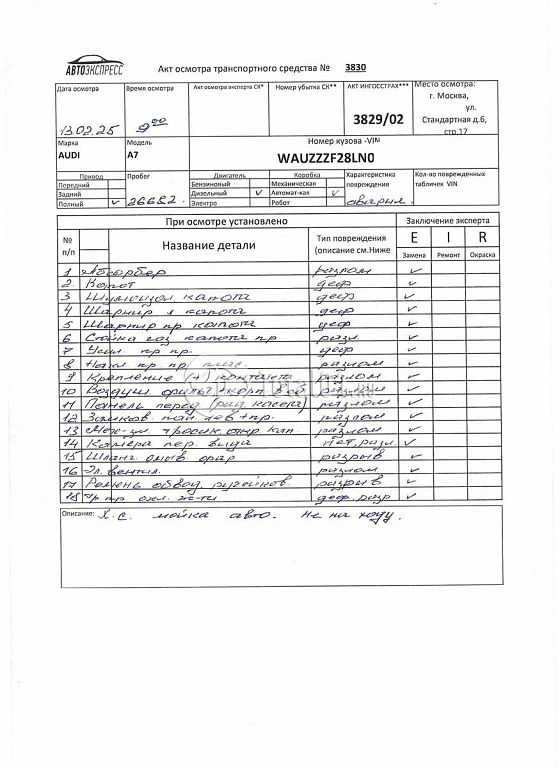 АВТОЭКСПРЕСС
Акт осмотра транспортного средства № 3830
Дата осмотра
Время осмотра
Акт осмотра эксперта СК*
Номер убытка СК**
АКТ ИНГОССТРАХ***
Место осмотра:
г. Москва,
ул.
Стандартная д.6,
стр.17
13.02.25
9 00
3829/02
Марка
Модель
Номер кузова -VIN
AUDI
A7
WAUZZZF28LN0
Привод
Пробег
Двигатель
Коробка
Характеристика повреждения
Кол-во поврежденных табличек VIN
Передний
Бензиновый
Механическая
Задний
Дизельный ✓
Автомат-кая ✓
Полный ✓
26682
Электро
Робот
аварийн.
При осмотре установлено
Заключение эксперта
№ п/п
Название детали
Тип повреждения (описание см.Ниже
E I R
Замена Ремонт Окраска
1 Абсорбер разлом ✓
2 Капот деф ✓
3 Шумоизол. капота деф ✓
4 Шарнир л капота деф ✓
5 Шарнир пр капота деф ✓
6 Стойка газ капота пр разл. ✓
7 Усил. пр пр. деф ✓
8 пр. пр. плас. разлом ✓
9 Крепление (+) контакта разлом ✓
10 Воздуш фильт корп. в сб разлом ✓
11 Панель перед (рад, касета) разлом ✓
12 Замков. пан лев + пр. разлом ✓
13 Мех-зм тросик. откр кап. разлом ✓
14 Камера пер. вида нет, разл. ✓
15 Шланг омыв. фар разрыв ✓
16 Эл. вентил. разлом ✓
17 Ремень обвод. ручейков. разрыв ✓
18 пр охл. ж-ти деф, разр ✓
Описание: Х.С. мойка авто. Не на ходу.